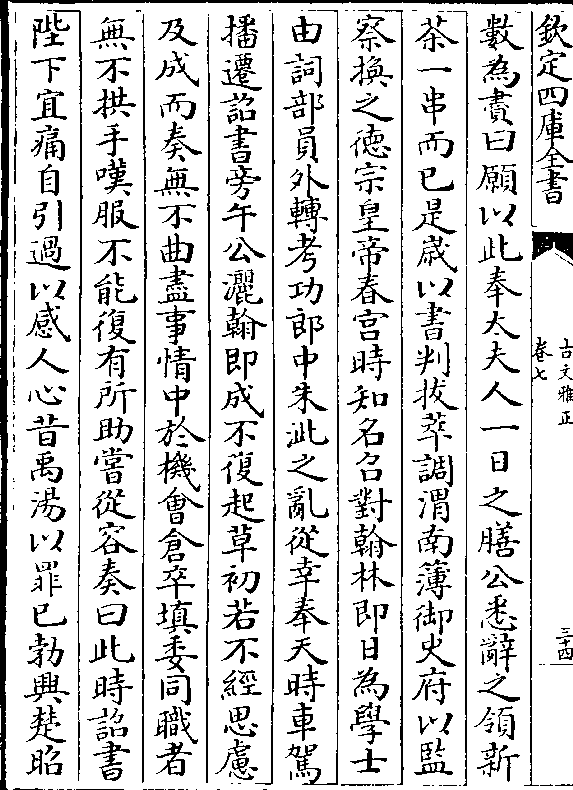 欽定四庫全書
古文雅正
卷七
三十四
數為贄曰願以此奉太夫人一日之膳公悉辭之領新
茶一串而已是歲以書判拔萃調渭南簿御史府以監
察換之德宗皇帝春宮時知名召對翰林即日為學士
由詞部員外轉考功郎中朱泚之亂從幸奉天時車駕
播遷詔書旁午公灑翰即成不復起草初若不經思慮
及成而奏無不曲盡事情中於機會倉卒填委同職者
無不拱手嘆服不能復有所助嘗從容奏曰此時詔書
陛下宜痛自引過以感人心昔禹湯以罪已勃興楚昭